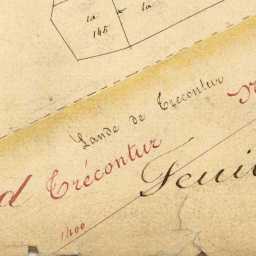 1a
1a
145
Lande de Trecontur
d Trécontur
Feui
1400